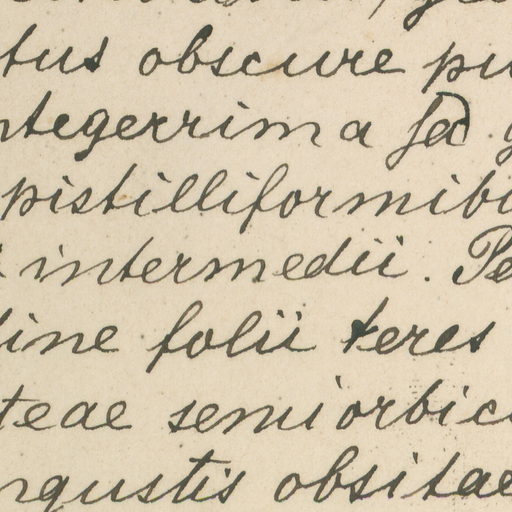 tus obscure pu
ntegerrima sed g
pistilliformibu
intermedii. Pe
dine folii teres
teae semiorbicu
ngustis obsitae